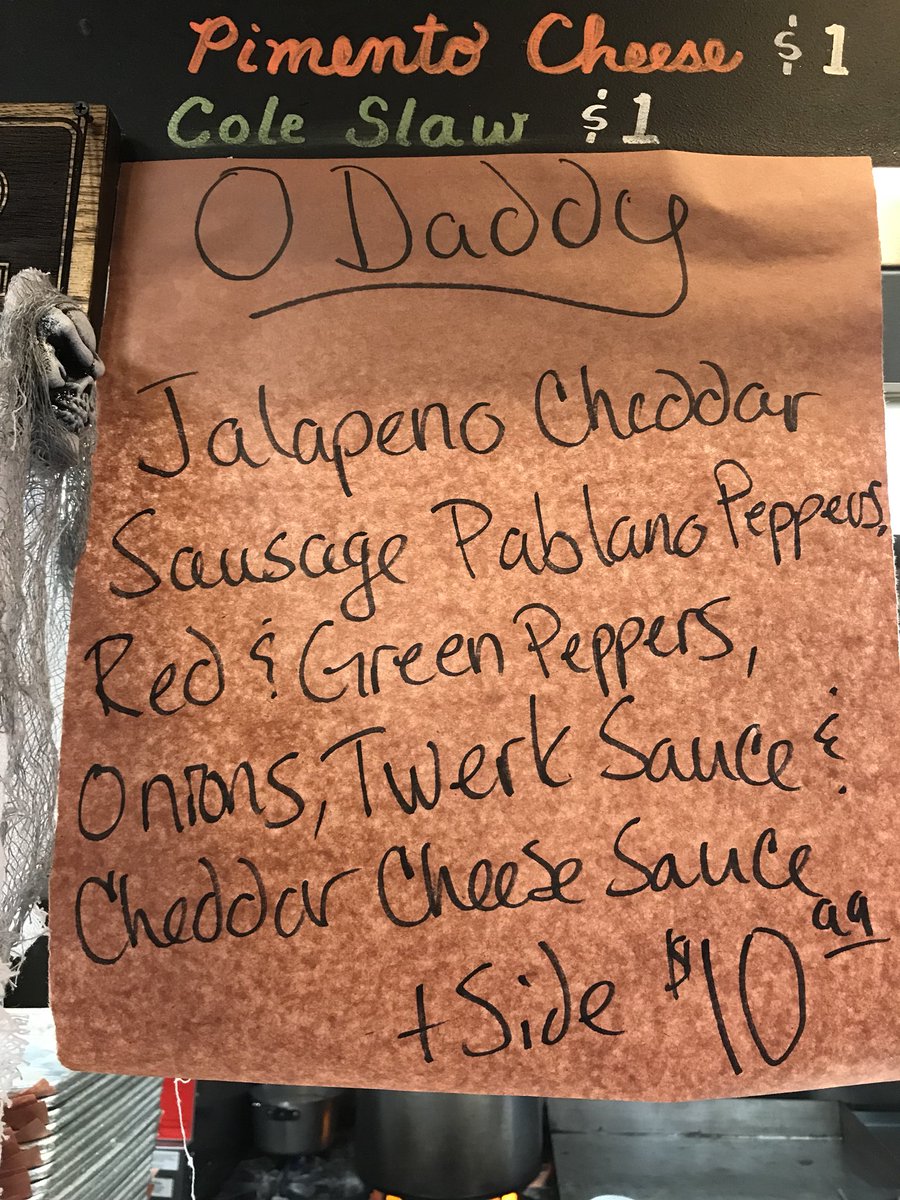 Pimento Cheese $1
Cole Slaw $1
O Daddy
Jalapeno Cheddar
Sausage Pablano Peppers,
Red & Green Peppers,
Onions, Twerk Sauce &
Cheddar Cheese Sauce
+ Side $10 99